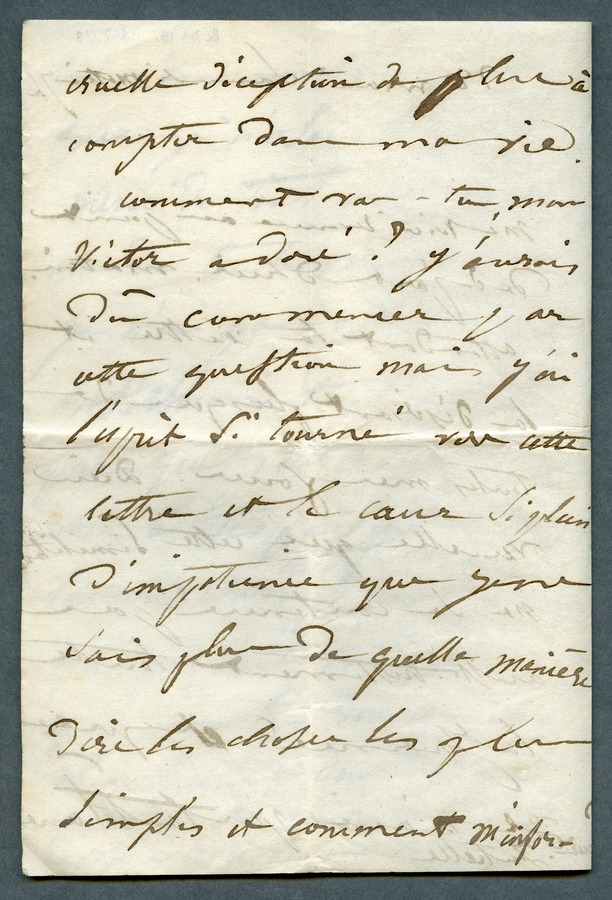 cruelle déception de plus à
compter dans ma vie.
comment vas-tu, mon
Victor adoré ? j'aurais
dû commencer par
cette question mais j'ai
l'esprit si tourné vers cette
lettre et le cœur si plein
d'impatience que je ne
sais plus de quelle manière
dire les choses les plus
simples et comment m'infor-